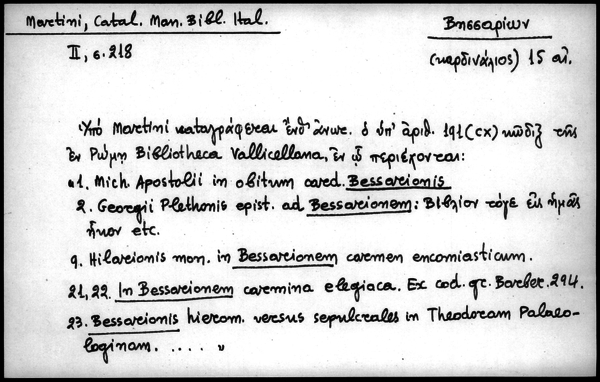 Martini, Catal. Man. Bibl. Ital.
Βησσαρίων
ΙΙ, σ. 218
(καρδινάλιος) 15 αἰ.
Ὑπό Martini καταγράφεται ἔνθ' ἄνωτ. ὁ ὑπ' ἀριθ. 191 (CX) κῶδιξ τῆς
ἐν Ρώμῃ Bibliotheca Vallicellana, ἐν ᾧ περιέχονται:
«1. Mich. Apostolii in obitum card. Bessarionis
2. Georgii Plethonis epist. ad Bessarionem: Βιβλίον τόγε εἰς ἡμᾶς
ἧκον etc.
9. Hilarionis mon. in Bessarionem carmen encomiasticum.
21, 22. In Bessarionem carmina elegiaca. Ex cod. gr. Barber. 294.
23. Bessarionis hierom. versus sepulcrales in Theodoram Palaeo-
loginam. ..... »